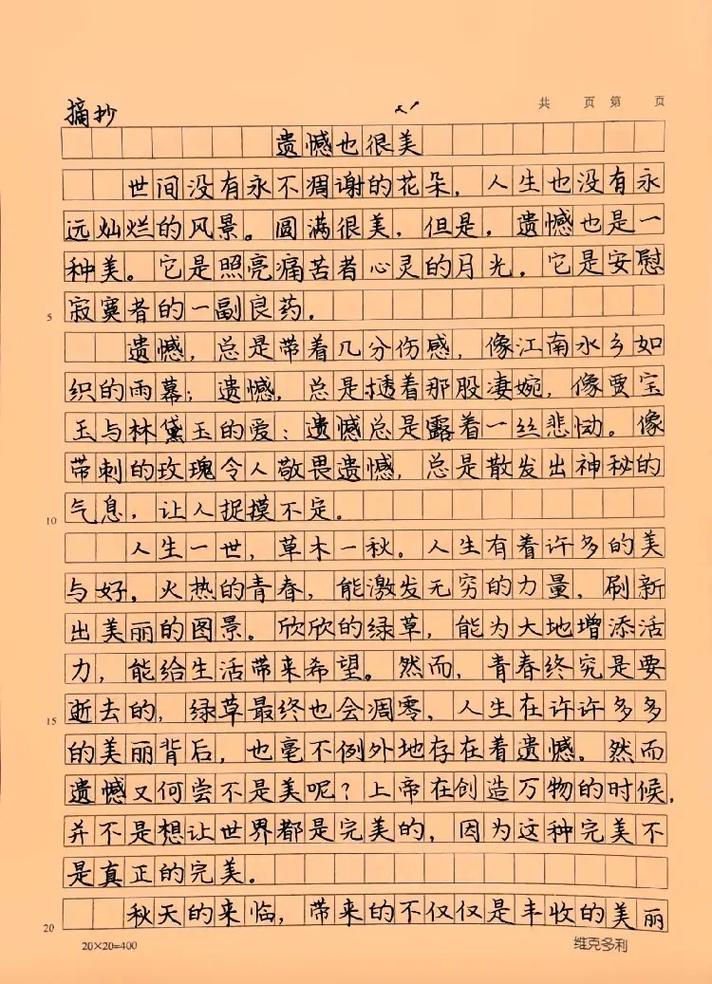 摘抄
共 页 第 页
遗憾也很美
世间没有永不凋谢的花朵，人生也没有永
远灿烂的风景。圆满很美，但是，遗憾也是一
种美。它是照亮痛苦者心灵的月光，它是安慰
寂寞者的一副良药。
5
遗憾，总是带着几分伤感，像江南水乡如
织的雨幕；遗憾，总是透着那股凄婉，像贾宝
玉与林黛玉的爱；遗憾总是露着一丝悲恸。像
带刺的玫瑰令人敬畏遗憾，总是散发出神秘的
气息，让人捉摸不定。
10
人生一世，草木一秋。人生有着许多的美
与好。火热的青春，能激发无穷的力量，刷新
出美丽的图景。欣欣的绿草，能为大地增添活
力，能给生活带来希望。然而，青春终究是要
逝去的，绿草最终也会凋零，人生在许许多多
15
的美丽背后，也毫不例外地存在着遗憾。然而
遗憾又何尝不是美呢？上帝在创造万物的时候，
并不是想让世界都是完美的，因为这种完美不
是真正的完美。
秋天的来临，带来的不仅仅是丰收的美丽
20
20×20=400
维克多利